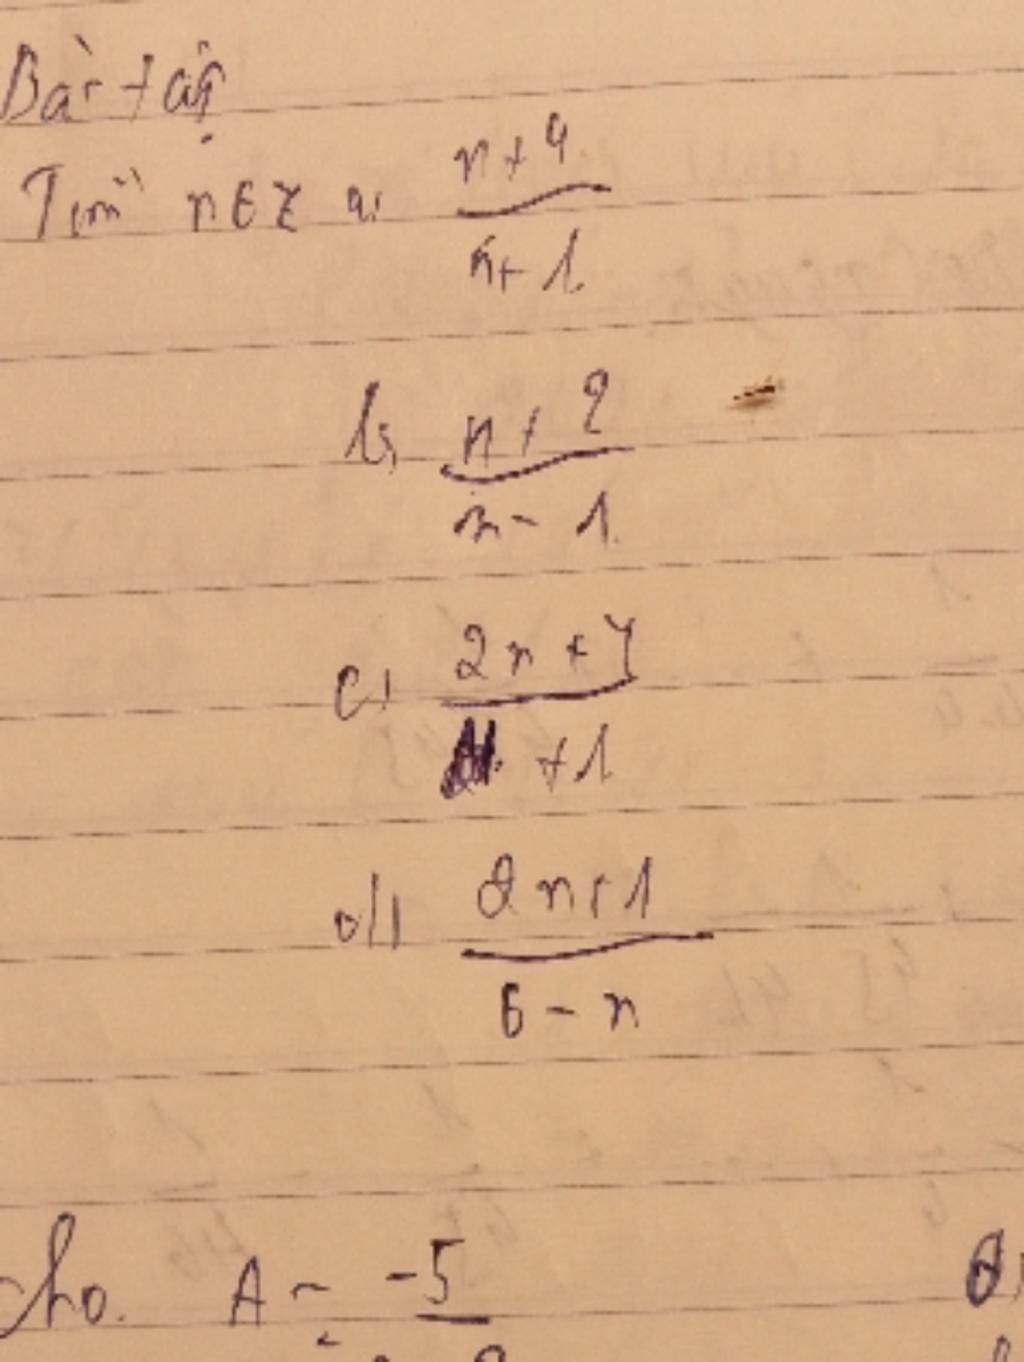 Bài tập
Tìm n∈Z a, n+4
n+1
b, n+2
n-1
c, 2n+7
+1
d, 2n+1
6-n
cho. A = -5